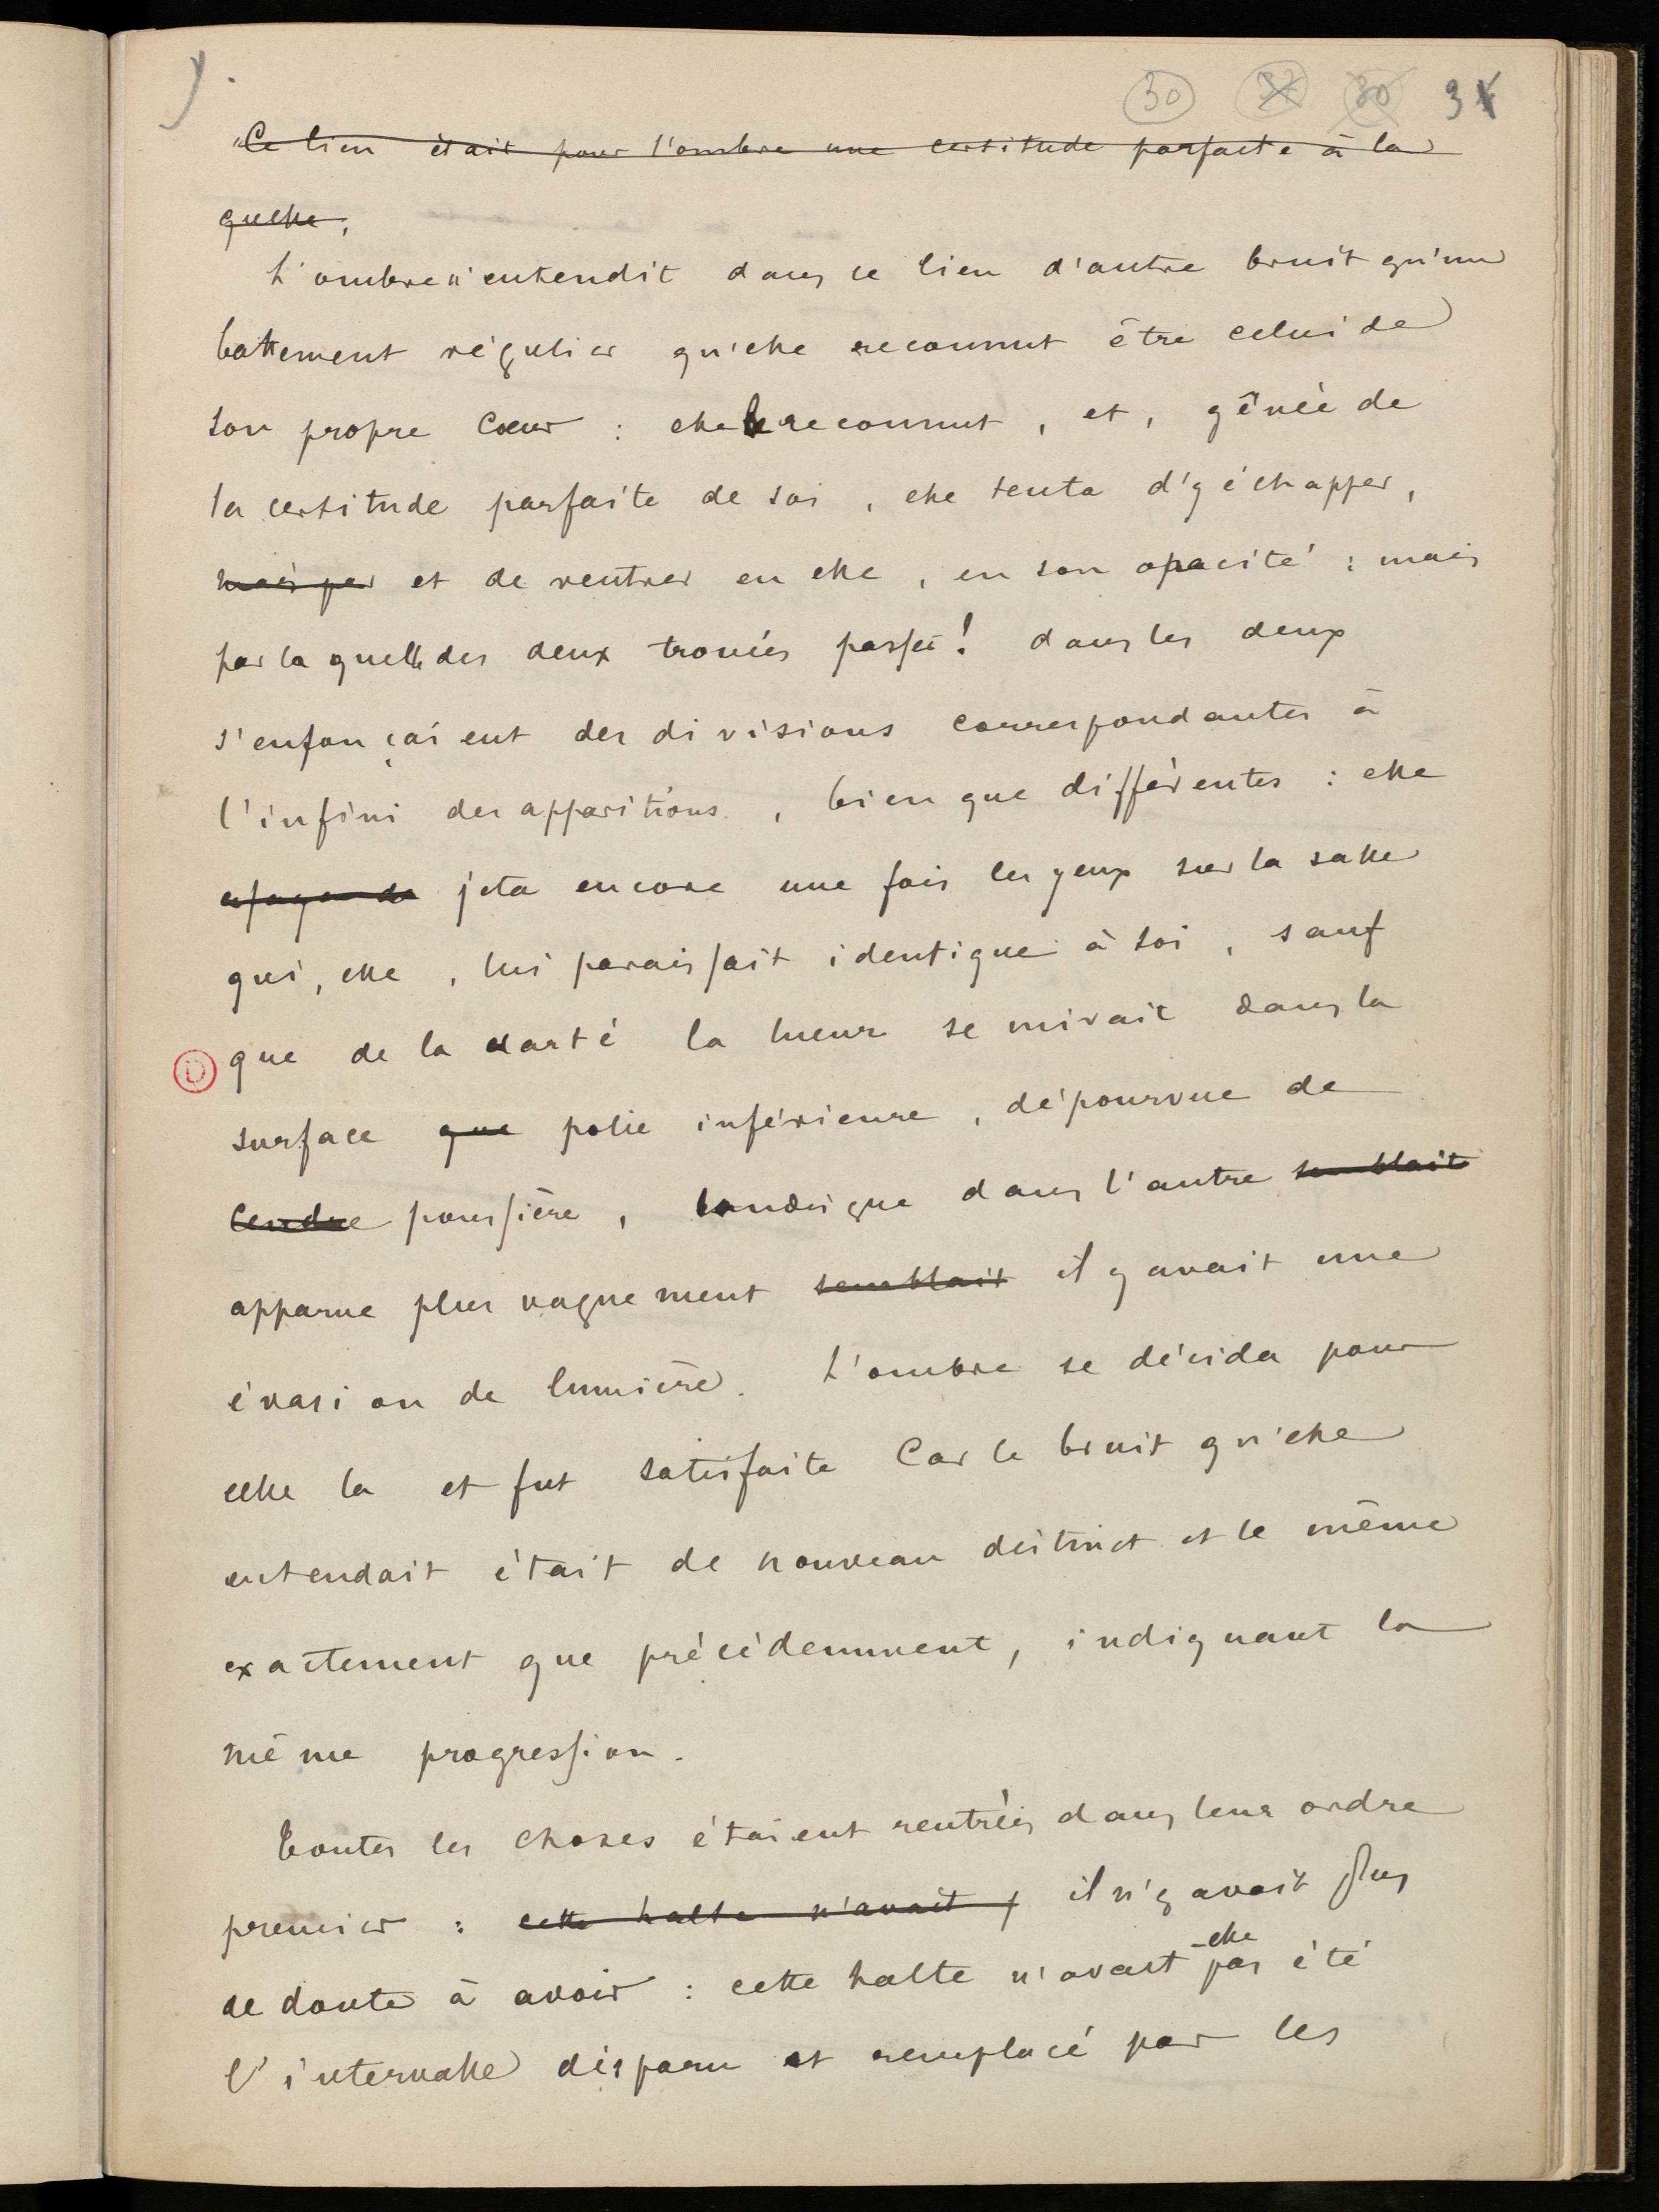 y. 30 32 30 34
Ce lieu était pour l'ombre une certitude parfaite à la
quelle,
L'ombre n'entendit dans ce lieu d'autre bruit qu'un
battement régulier qu'elle reconnut être celui de
son propre cœur : elle le reconnut, et, gênée de
la certitude parfaite de soi, elle tenta d'y échapper,
mais par et de rentrer en elle, en son opacité : mais
par laquelle des deux trouées passer ! dans les deux
s'enfonçaient des divisions correspondantes à
l'infini des apparitions, bien que différentes : elle
jeta encore une fois les yeux sur la salle
qui, elle, lui paraissait identique à soi, sauf
que de la clarté la lueur se mirait dans la
surface que polie inférieure, dépourvue de
cendre poussière, tandis que dans l'autre semblait
apparue plus vaguement semblait il y avait une
évasion de lumière. L'ombre se décida pour
celle la et fut satisfaite Car le bruit qu'elle
entendait était de nouveau distinct et le même
exactement que précédemment, indiquant la
même progression.
Toutes les choses étaient rentrées dans leur ordre
premier : cette halte n'avait il n'y avait plus
de doute à avoir : cette halte n'avait -elle pas été
l'intervalle disparu et remplacé par les